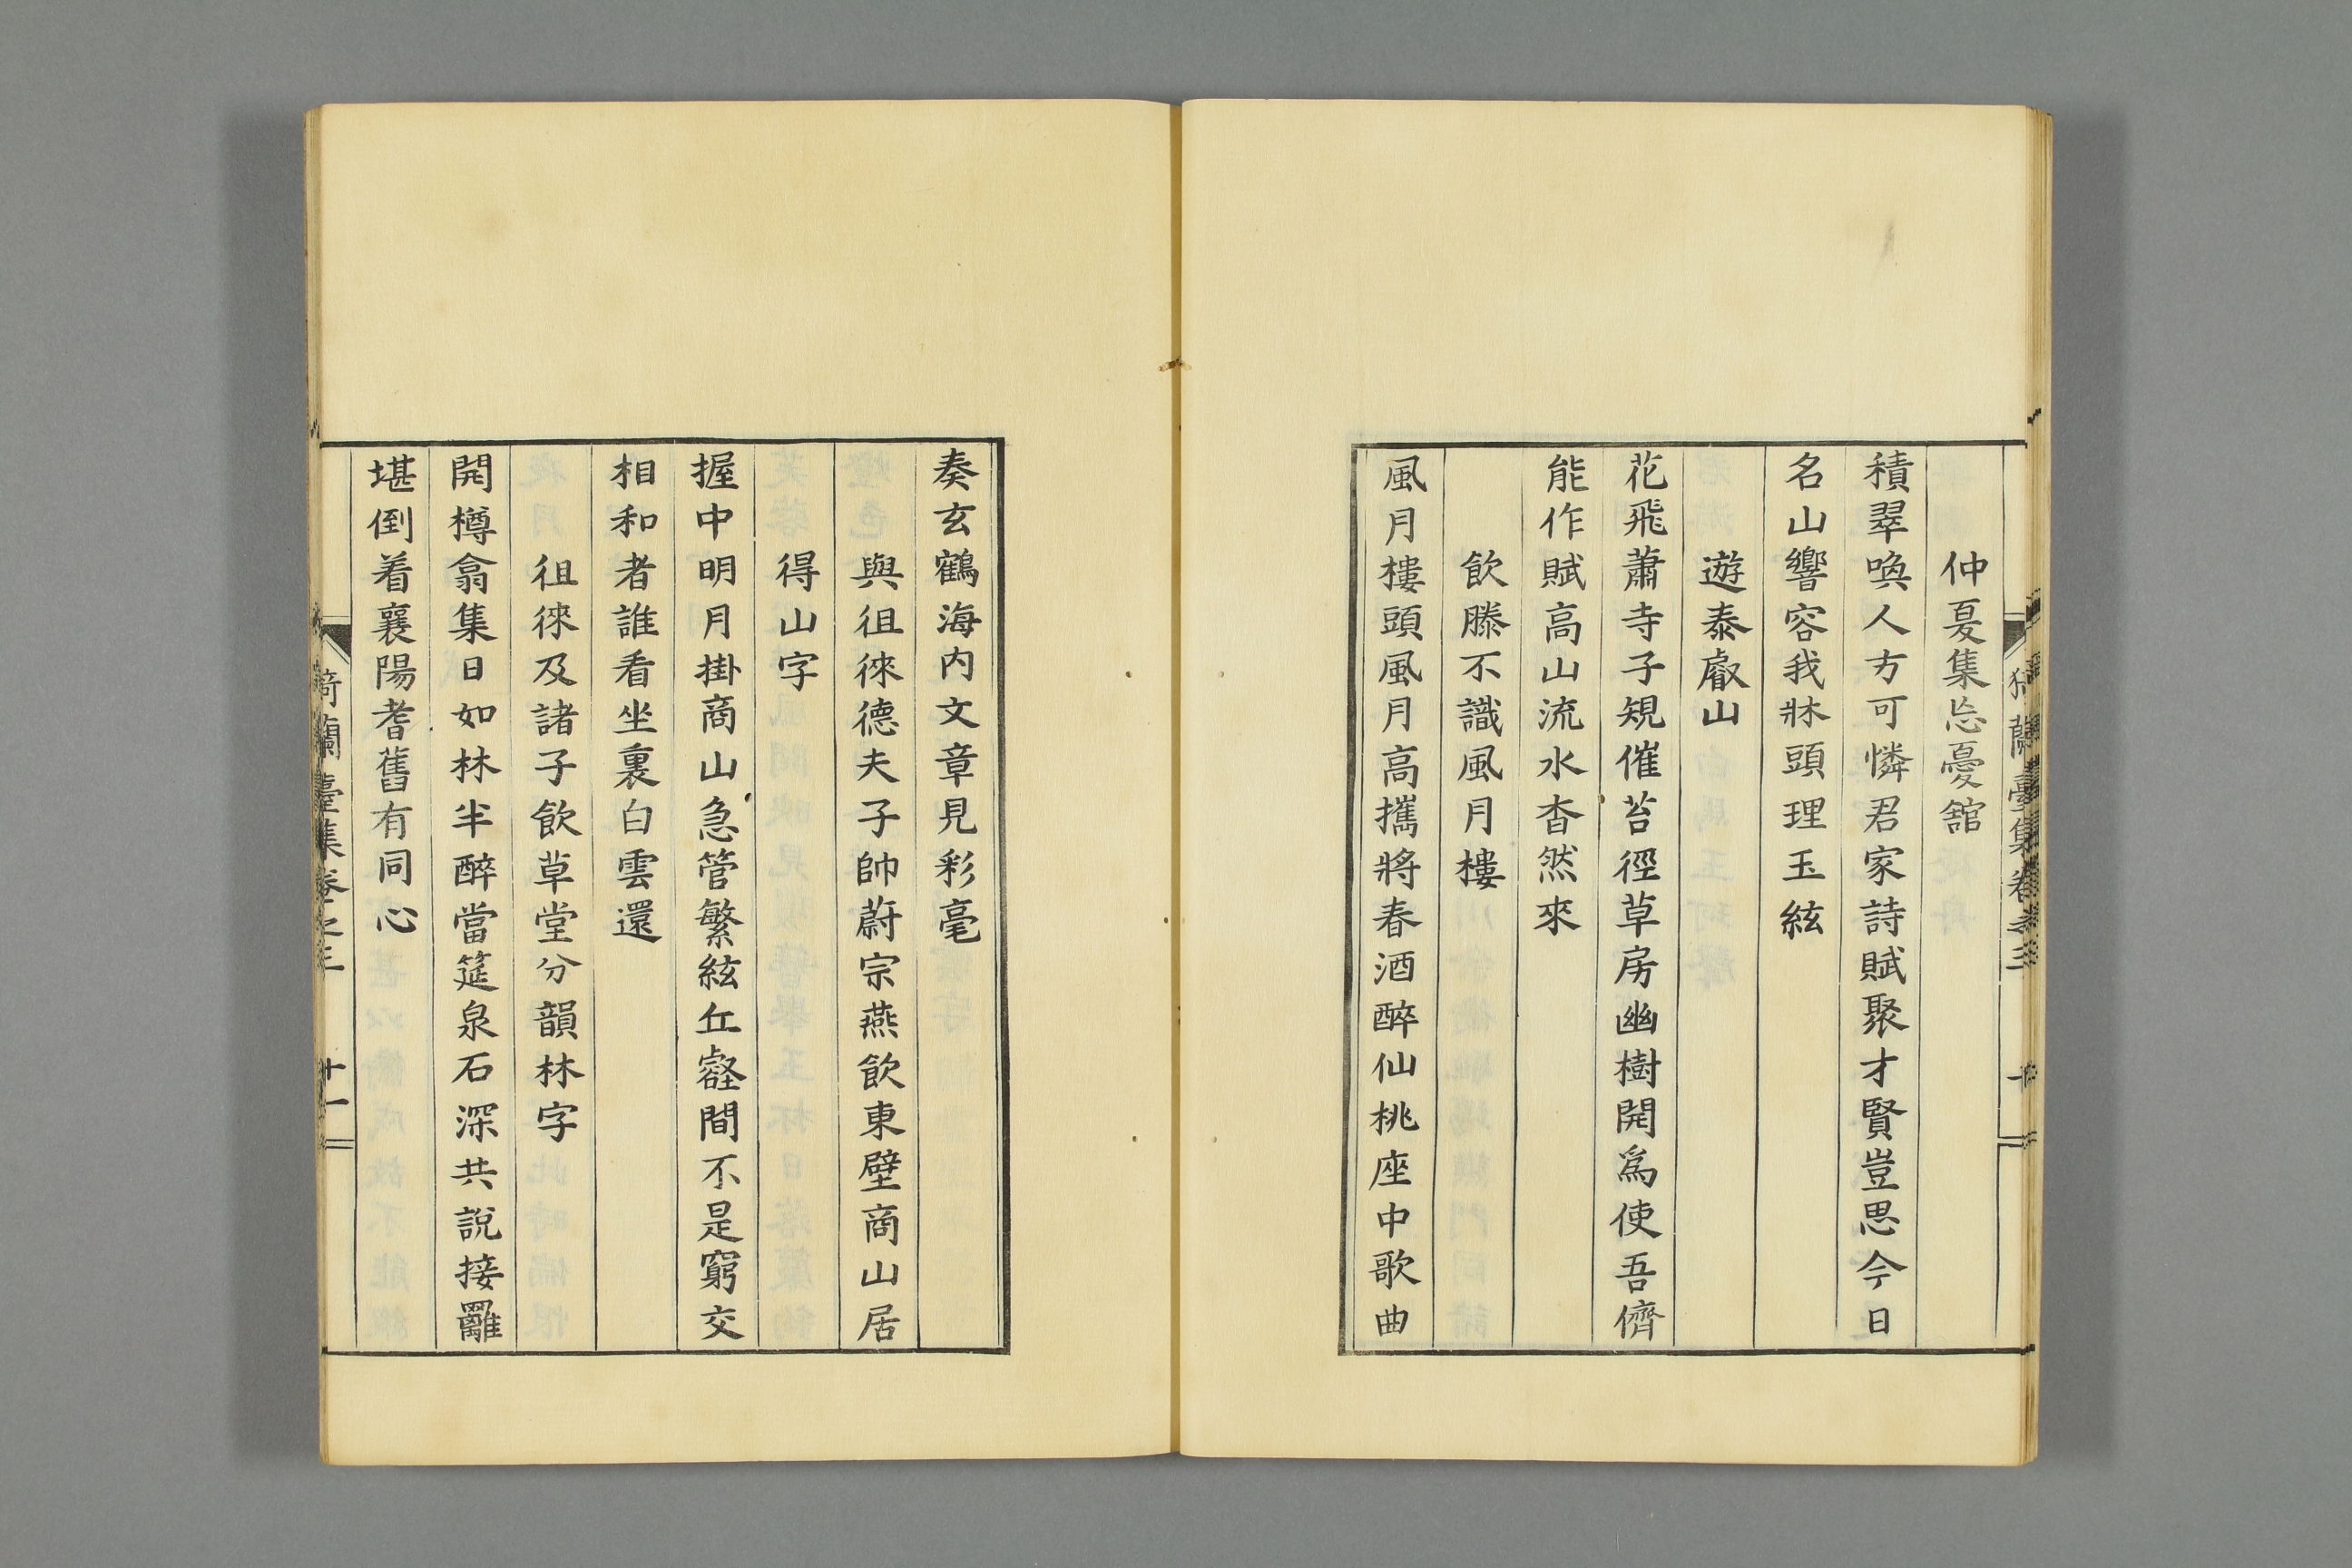 仲夏集忘憂舘
積翠喚人方可憐君家詩賦聚才賢豈思今日
名山響容我牀頭理玉絃
遊泰叡山
花飛蕭寺子規催苔徑草房幽樹開爲使吾儕
能作賦高山流水杳然來
飲滕不識風月樓
風月樓頭風月高攜將春酒醉仙桃座中歌曲
奏玄鶴海内文章見彩毫
與徂徠德夫子帥蔚宗燕飲東壁商山居
得山字
握中明月掛商山急管繁絃丘壑間不是窮交
相和者誰看坐裏白雲還
徂徠及諸子飲草堂分韻林字
開樽翕集日如林半醉當筵泉石深共說接䍦
堪倒着襄陽耆舊有同心
蘭臺集卷之三 十一